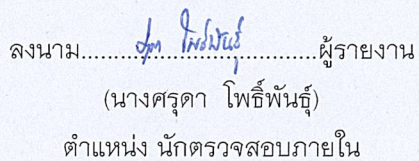 ลงนาม..................................ผู้รายงาน
(นางศรุดา โพธิ์พันธุ์)
ตำแหน่ง นักตรวจสอบภายใน